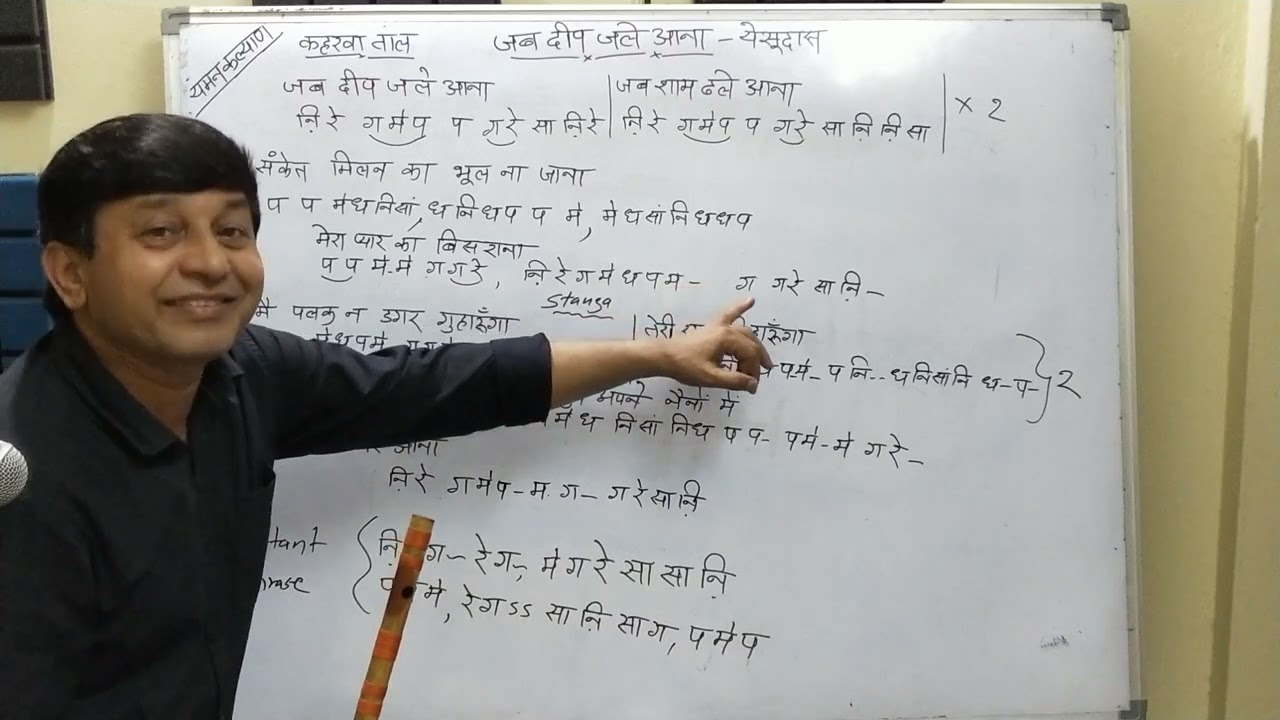 यमन कल्याण
कहरवा ताल जब दीप जले आना - येसूदास
जब दीप जले आना | जब शाम ढले आना
ऩि रे ग॒मे॑प प गरे सा ऩि रे | ऩि रे ग॒मे॑प प गरे सा ऩि ऩि सा | × 2
संकेत मिलन का भूल ना जाना
प प मे॑ ध नि सां, ध नि ध प प मे॑, मे॑ ध सां नि ध ध प
मेरा प्यार का बिसराना
प प मे॑-मे॑ ग ग रे, ऩि रे ग मे॑ ध प म - ग ग रे सा ऩि -
Stanza
मै पलकन डगर गुहारूँगा | तेरी
मे॑ ध प मे॑ प मे॑ - प नि - - ध नि सां नि ध - प - } 2
अपने नैनों में
मे॑ ध नि सां नि ध प प - प मे॑ - मे॑ ग रे -
ऩि रे ग मे॑ प - म ग - ग रे सा ऩि
ऩि ग - रे ग -, मे॑ ग रे सा सा ऩि
मे॑, रे ग ऽऽ सा ऩि सा ग, प मे॑ प